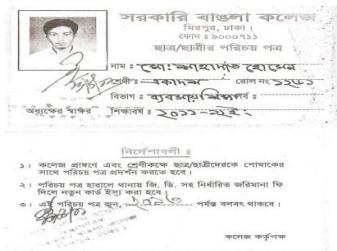 সরকারি বাঙলা কলেজ
মিরপুর, ঢাকা।
ফোন : ৯০০০৭১১
ছাত্র/ছাত্রীর পরিচয় পত্র
নাম : মো: শাহাদাত হোসেন
শ্রেণী : একাদশ রোল নং ১২৬১
বিভাগ : ব্যবসায় শিক্ষা বর্ষ :
অধ্যক্ষের স্বাক্ষর শিক্ষাবর্ষ : ২০১১-
নির্দেশাবলী :
১। কলেজ প্রাঙ্গণে এবং শ্রেণীকক্ষে ছাত্র/ছাত্রীদেরকে পোষাকের
সাথে পরিচয় পত্র প্রদর্শন করতে হবে।
২। পরিচয় পত্র হারালে থানায় জি. ডি. সহ নির্ধারিত জরিমানা ফি
দিলে নতুন কার্ড ইস্যু করা হবে।
৩। এই পরিচয় পত্র জুন, ২০১৩ পর্যন্ত বলবৎ থাকবে।
কলেজ কর্তৃপক্ষ